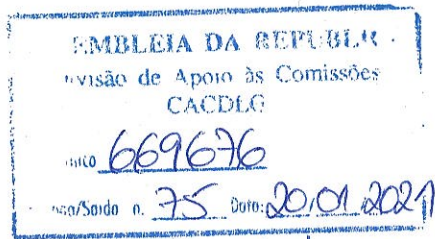 EMBLEIA DA REPUBLI
visão de Apoio às Comissões
CACDLG
nico 669676
/Saído n. 75 Data: 20.01.2021